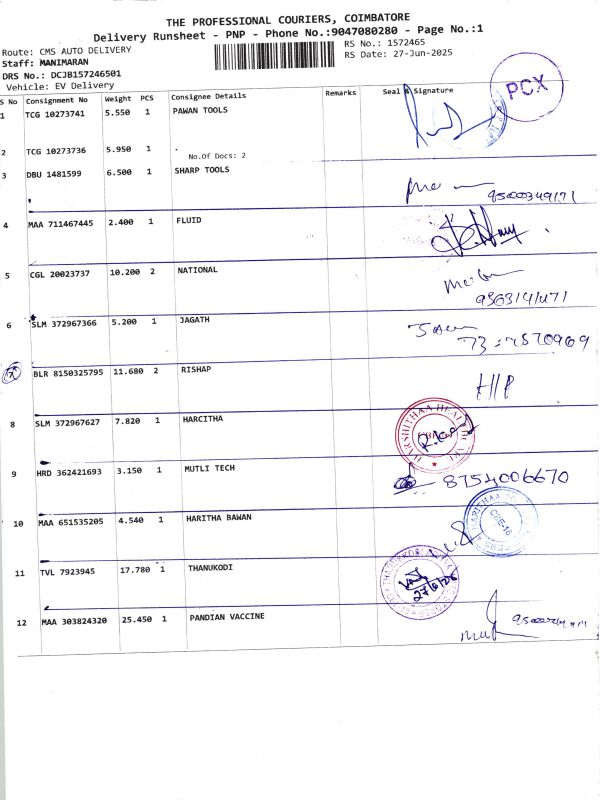 THE PROFESSIONAL COURIERS, COIMBATORE
Delivery Runsheet - PNP - Phone No.:9047080280 - Page No.:1
Route: CMS AUTO DELIVERY
RS No.: 1572465
Staff: MANIMARAN
RS Date: 27-Jun-2025
DRS No.: DCJB157246501
Vehicle: EV Delivery
PCX
S No Consignment No Weight PCS Consignee Details Remarks Seal & Signature
1 TCG 10273741 5.550 1 PAWAN TOOLS
2 TCG 10273736 5.950 1 .
No.Of Docs: 2
3 DBU 1481599 6.500 1 SHARP TOOLS
9500349171
4 MAA 711467445 2.400 1 FLUID
5 CGL 20023737 10.200 2 NATIONAL
6 SLM 372967366 5.200 1 JAGATH
7 BLR 8150325795 11.680 2 RISHAP
H/P
8 SLM 372967627 7.820 1 HARCITHA
HARSHITHAA HEALTH
9 HRD 362421693 3.150 1 MUTLI TECH
8754006670
10 MAA 651535205 4.540 1 HARITHA BAWAN
CBE-18
11 TVL 7923945 17.780 1 THANUKODI
27/6/25
12 MAA 303824320 25.450 1 PANDIAN VACCINE